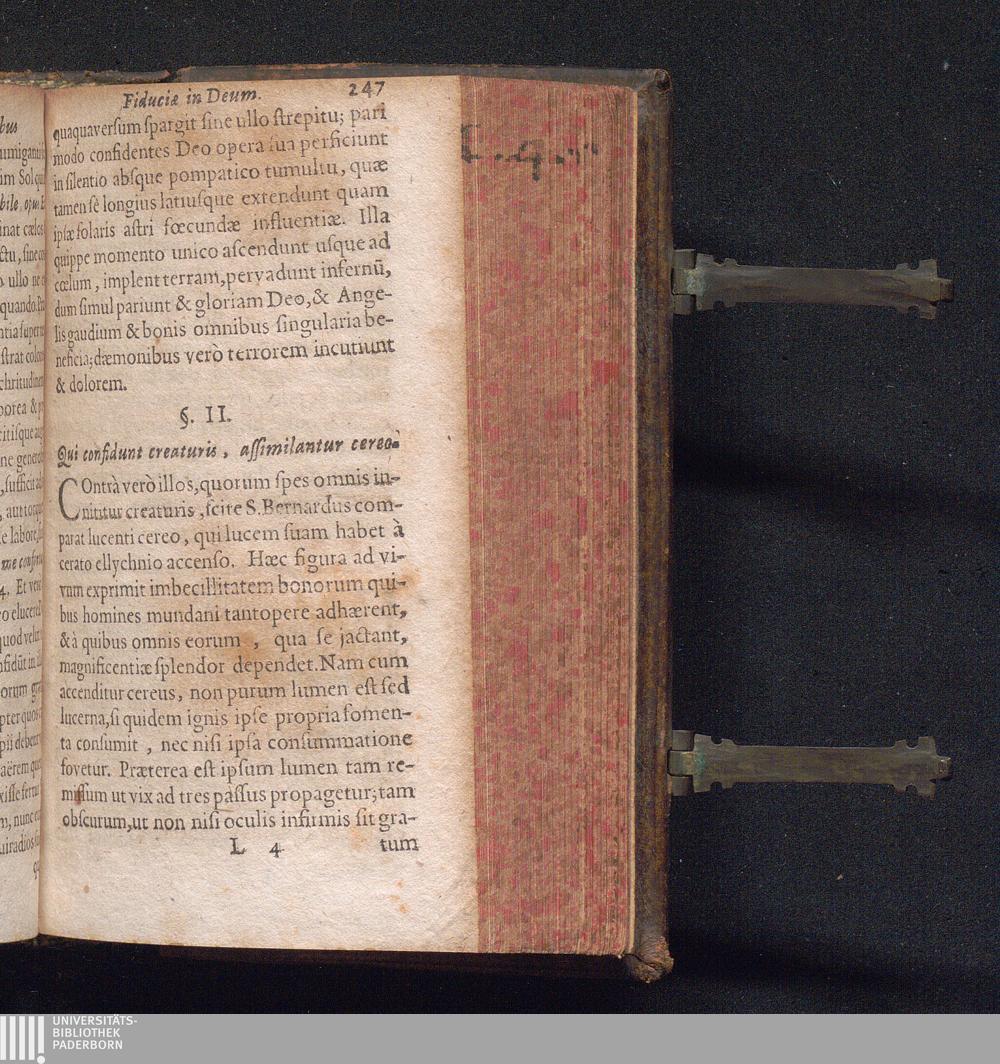 Fiduciæ in Deum. 247
quaquaversum spargit sine ullo strepitu; pari
modo confidentes Deo opera sua perficiunt
in silentio absque pompatico tumultu, quæ
tamen sè longius latiusque extendunt quam
ipsæ solaris astri fœcundæ influentiæ. Illa
quippe momento unico ascendunt usque ad
cœlum, implent terram, pervadunt infernū,
dum simul pariunt & gloriam Deo, & Ange-
lis gaudium & bonis omnibus singularia be-
neficia; dæmonibus verò terrorem incutiunt
& dolorem.
§. II.
Qui confidunt creaturis, assimilantur cereo.
COntrà verò illos, quorum spes omnis in-
nititur creaturis, scite S. Bernardus com-
parat lucenti cereo, qui lucem suam habet à
cerato ellychnio accenso. Hæc figura ad vi-
vum exprimit imbecillitatem bonorum qui-
bus homines mundani tantopere adhærent,
& à quibus omnis eorum, qua se jactant,
magnificentiæ splendor dependet. Nam cum
accenditur cereus, non purum lumen est sed
lucerna, si quidem ignis ipse propria fomen-
ta consumit, nec nisi ipsa consummatione
fovetur. Præterea est ipsum lumen tam re-
missum ut vix ad tres passus propagetur; tam
obscurum, ut non nisi oculis infirmis sit gra-
L 4 tum
UNIVERSITÄTS-
BIBLIOTHEK
PADERBORN